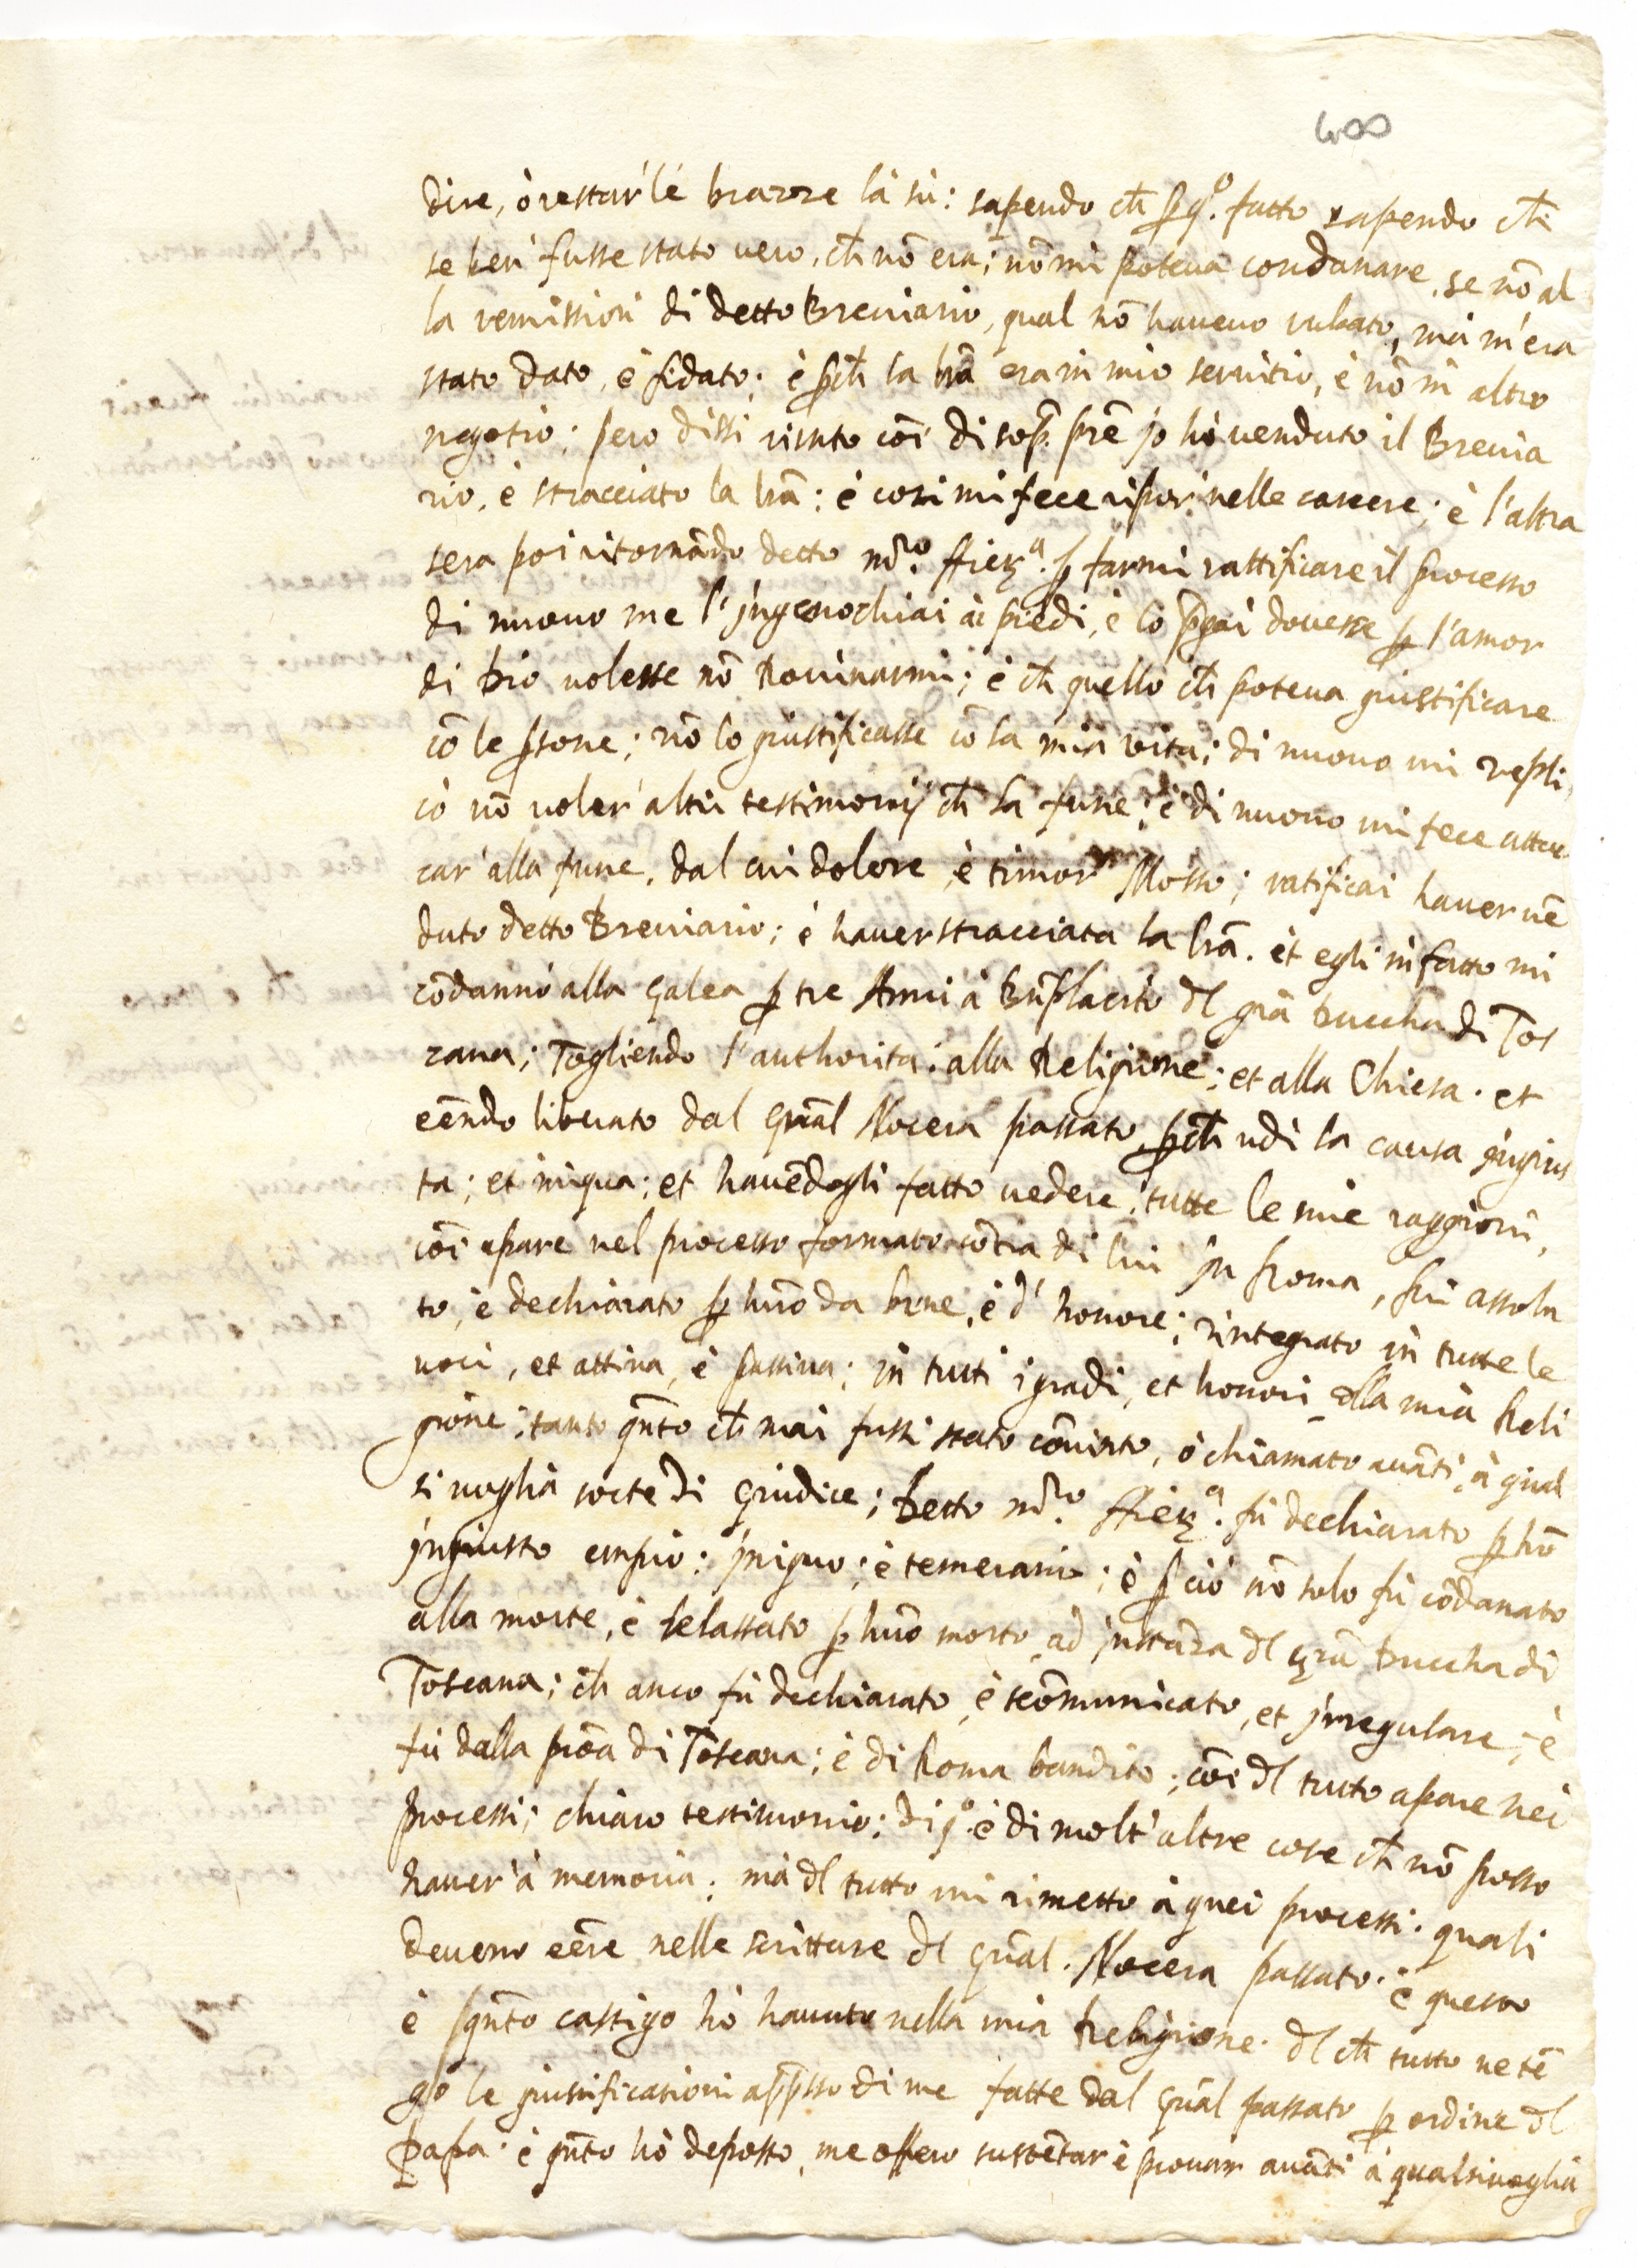 400
dire, ò restar' le brazze là sù: sapendo ch̃ p̱ q.º fatto sapendo ch̃
se ben' fusse stato vero, ch̃ nõ era; nõ mi poteva condanare, se nõ al
la remission' di detto Breviario, qual nõ havevo rubato, mà m'era
stato dato, è fidato; è p̱ch̃ la lrã era in mio servitio, è nõ in altro
negotio; pero dissi risuto cõi di sop.ª prẽ jo hò venduto il Brevia
rio, è stracciato la lrã: è cosi mi fece ripor' nelle carcere; è l'altra
sera poi ritornãdo detto m̃.ro ffier.ª p̱ farmi rattificare il processo
di nuovo me l'jngenochiai ai piedi, è lo p̱gai dovesse p̱ l'amor
di Dio volesse nõ Rovinarmi; è ch̃ quello ch̃ poteva giustificare
cõ le p̱sone; nõ lo giustificasse cõ la mia vita; di nuovo mi repli
cò nõ voler' altri testimonij ch̃ la fune; è di nuovo mi fece attac
car' alla fune, dal cui dolore, è timor Mosso; ratificai haver vẽ
duto detto Breviario; è haver stracciata la lrã. èt egli in fatto mi
cõdannò alla Galea p̱ tre Anni à Bñplacito dl grã Duccha di Tos
cana; Togliendo l'authorità: alla Religione; et alla Chiesa. et
eẽndo liberato dal Gñal Nocera passato, p̱ch̃ udì la causa jngius
ta; et iniqua; et havẽdogli fatto vedere, tutte le mie raggioni,
cõi apare nel processo formato cõtra di lui jn Roma, fui assolu
to, è dechiarato p̱ huõ da bene, è d' honore; rintegrato in tutte le
voci, et attiva, è passiva; in tutti i gradi, et honori dlla mia Reli
gione; tanto qñto ch̃ mai fussi stato cõvinto, ò chiamato avãti, à qual
si voglia sorte di Giudice; Detto m̃.ro ffier.ª fù dechiarato p̱ hõ
jngiusto empio: jniquo; è temerario; è p̱ ciò nõ solo fù cõdanato
alla morte, è relassato p̱ huõ morto, ad jnstãza dl grã Duccha di
Toscana; ch̃ anco fù dechiarato, è scõmunicato, et jrregulare, è
fù dalla proã di Toscana; è di Roma bandito; cõi dl tutto apare nei
processi; chiaro testimonio; di q.º è di molt' altre cose ch̃ nõ posso
haver' à memoria; mà dl tutto mi rimetto à quei processi. quali
deveno eẽre nelle scritture dl Gñal. Nocera passato. è questo
è p̱ qñto castigo hò havuto nella mia Religione. dl ch̃ tutto ne tẽ
go le giustificationi app̱sso di me fatte dal Gñal passato p̱ ordine dl
Papa. è qñto hò deposto, me offero sustẽtar è provar avãti à qualsivoglia